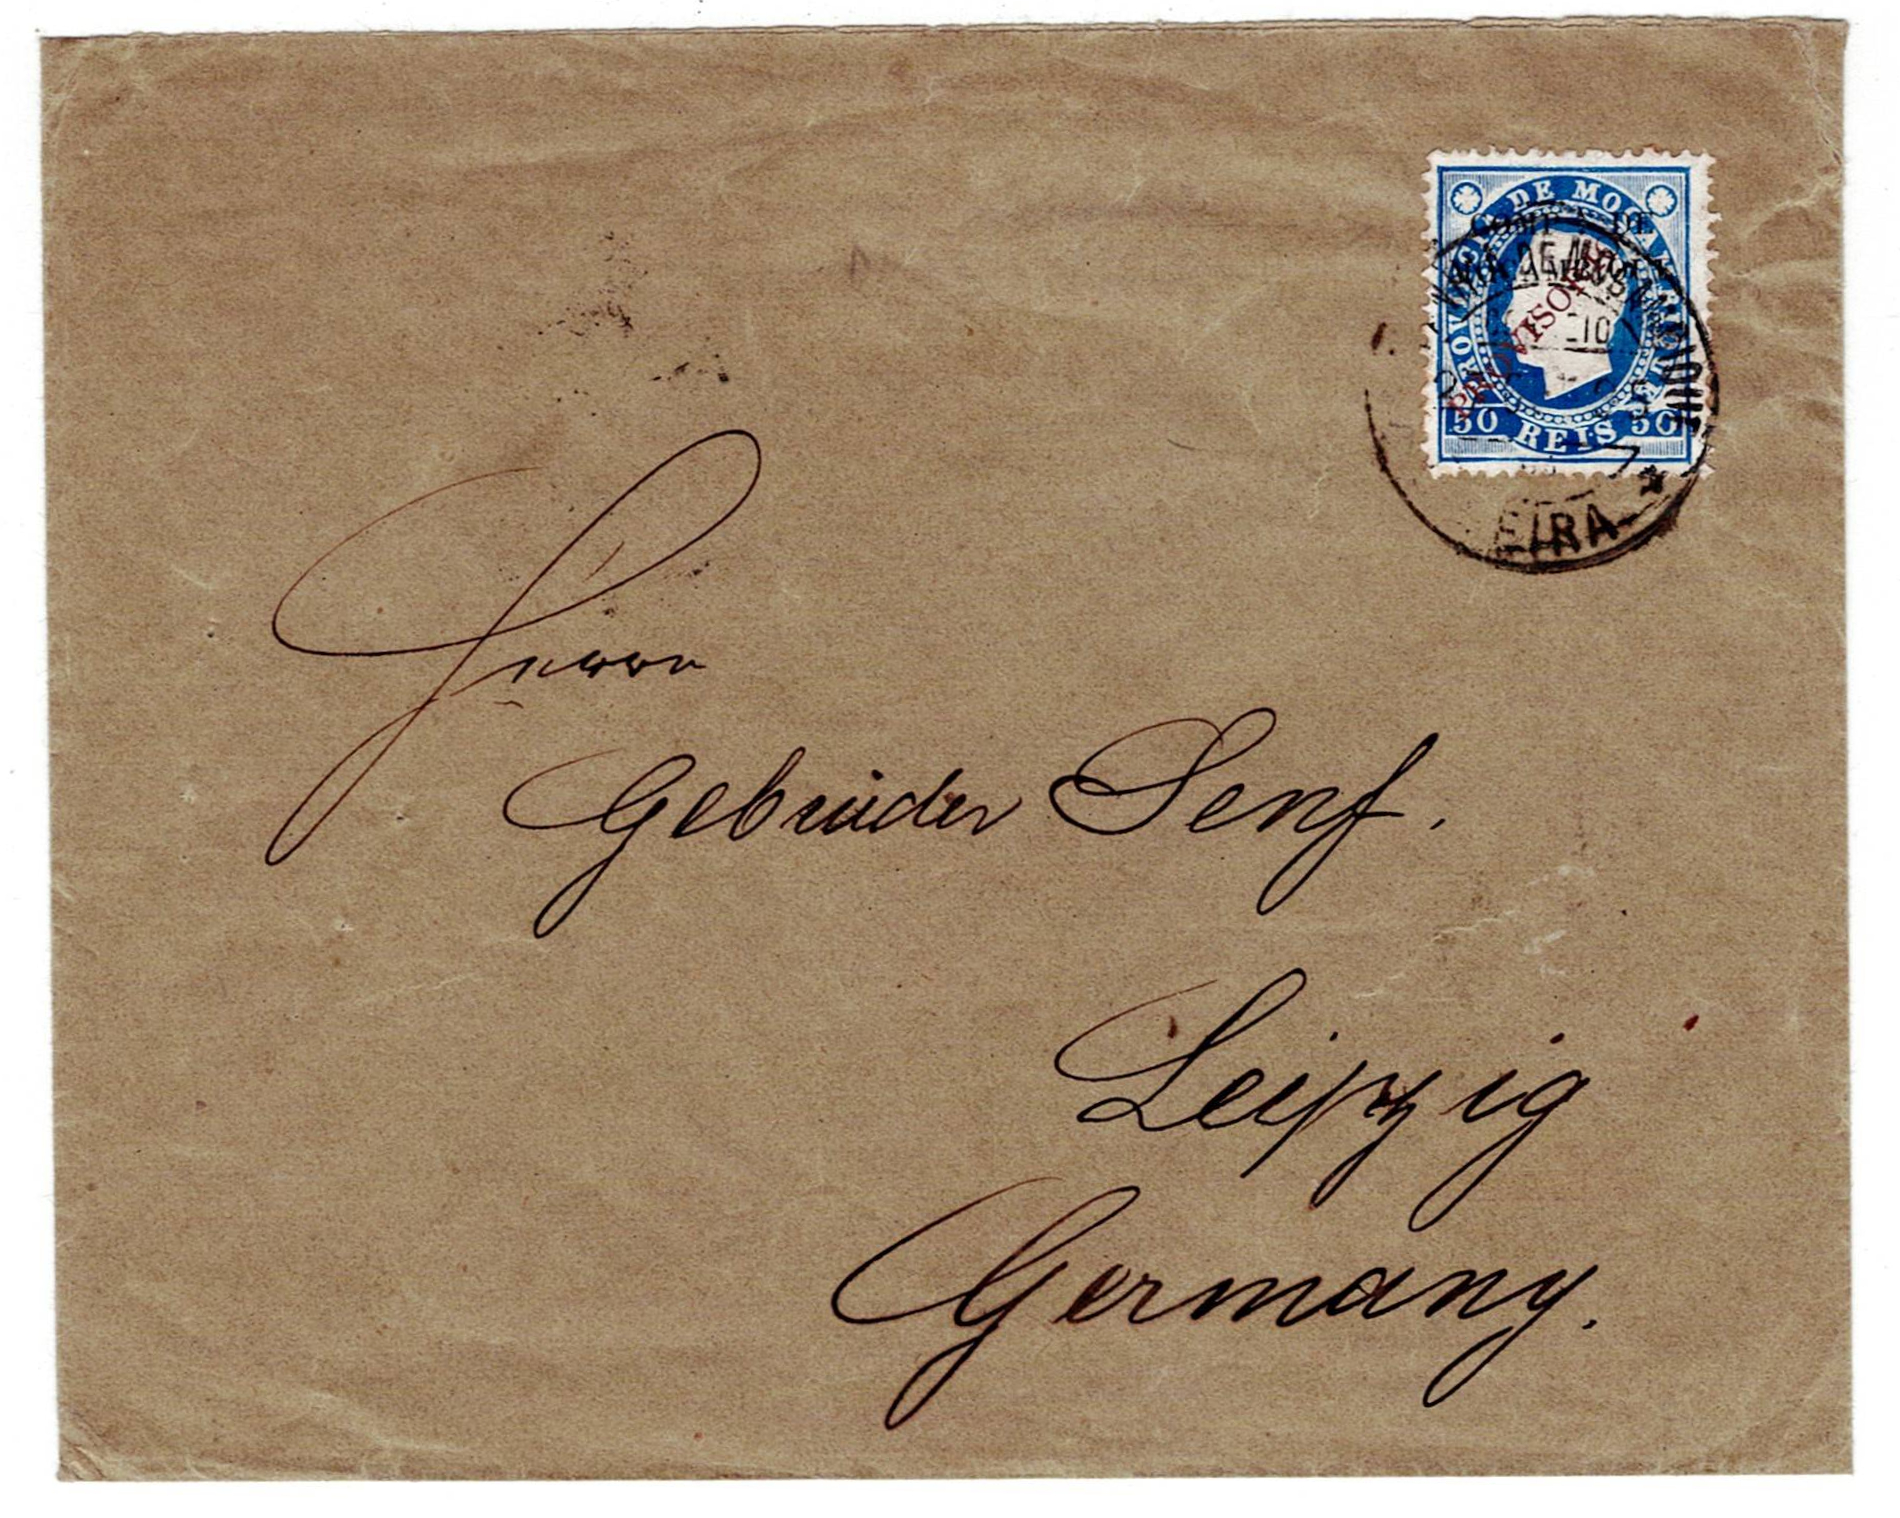 PROVINCIA DE MOÇAMBIQUE
COMP.A DE
MOÇAMBIQUE
PROVISORIO
50 REIS 50
DE MOÇAMBIQUE
BEIRA
Herrn
Gebrüder Senf.
Leipzig
Germany.